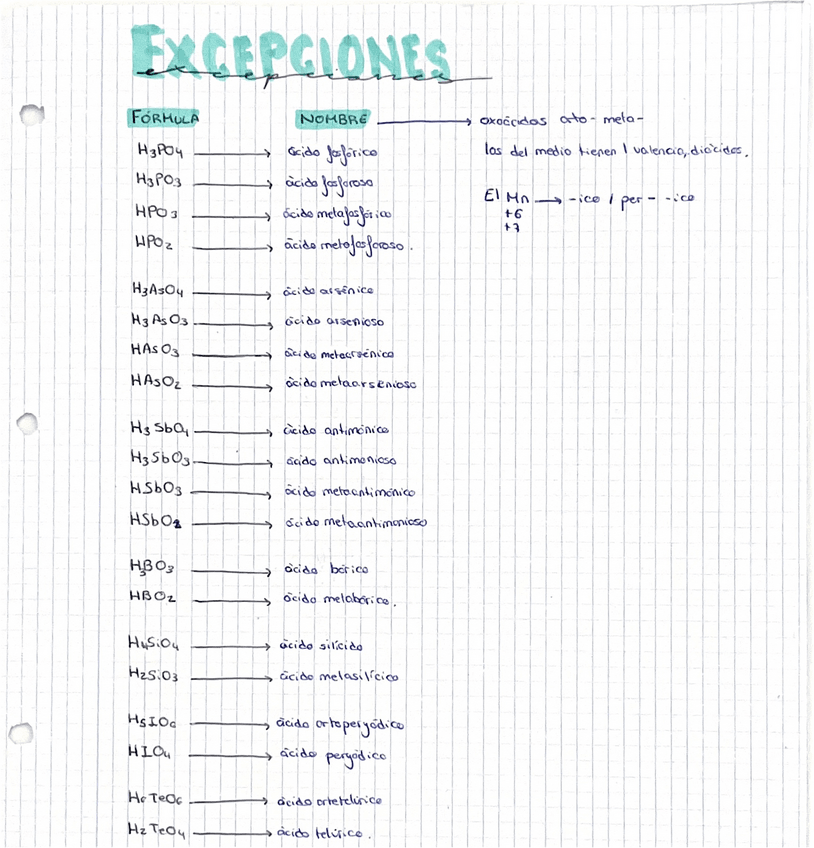 EXCEPCIONES
excepciones
FÓRMULA NOMBRE → oxoácidos orto- meta-
H3PO4 → ácido fosfórico
los del medio tienen 1 valencia, diácidos.
H3PO3 → ácido fosforoso
El Mn → -ico / per- -ico
+6
+7
HPO3 → ácido metafosfórico
HPO2 → ácido metafosforoso.
H3AsO4 → ácido arsénico
H3AsO3 → ácido arsenioso
HAsO3 → ácido metaarsénico
HAsO2 → ácido metaarsenioso
H3SbO4 → ácido antimónico
H3SbO3 → ácido antimonioso
HSbO3 → ácido metaantimónico
HSbO2 → ácido metaantimonioso
H3BO3 → ácido bórico
HBO2 → ácido metabórico.
H4SiO4 → ácido silícido
H2SiO3 → ácido metasilícico
H5IO6 → ácido ortoperyódico
HIO4 → ácido peryódico
H6TeO6 → ácido ortotelúrico
H2TeO4 → ácido telúrico.